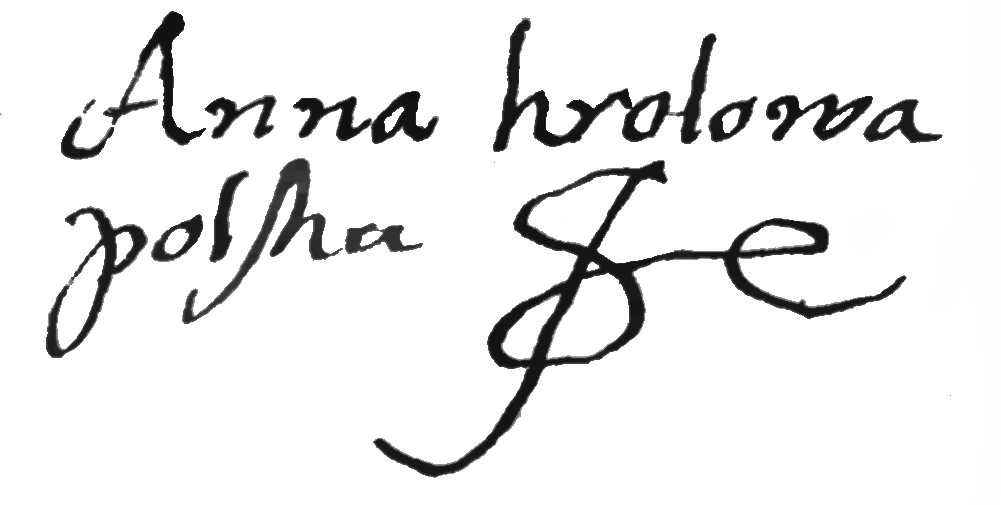 Anna krolowa
polſka